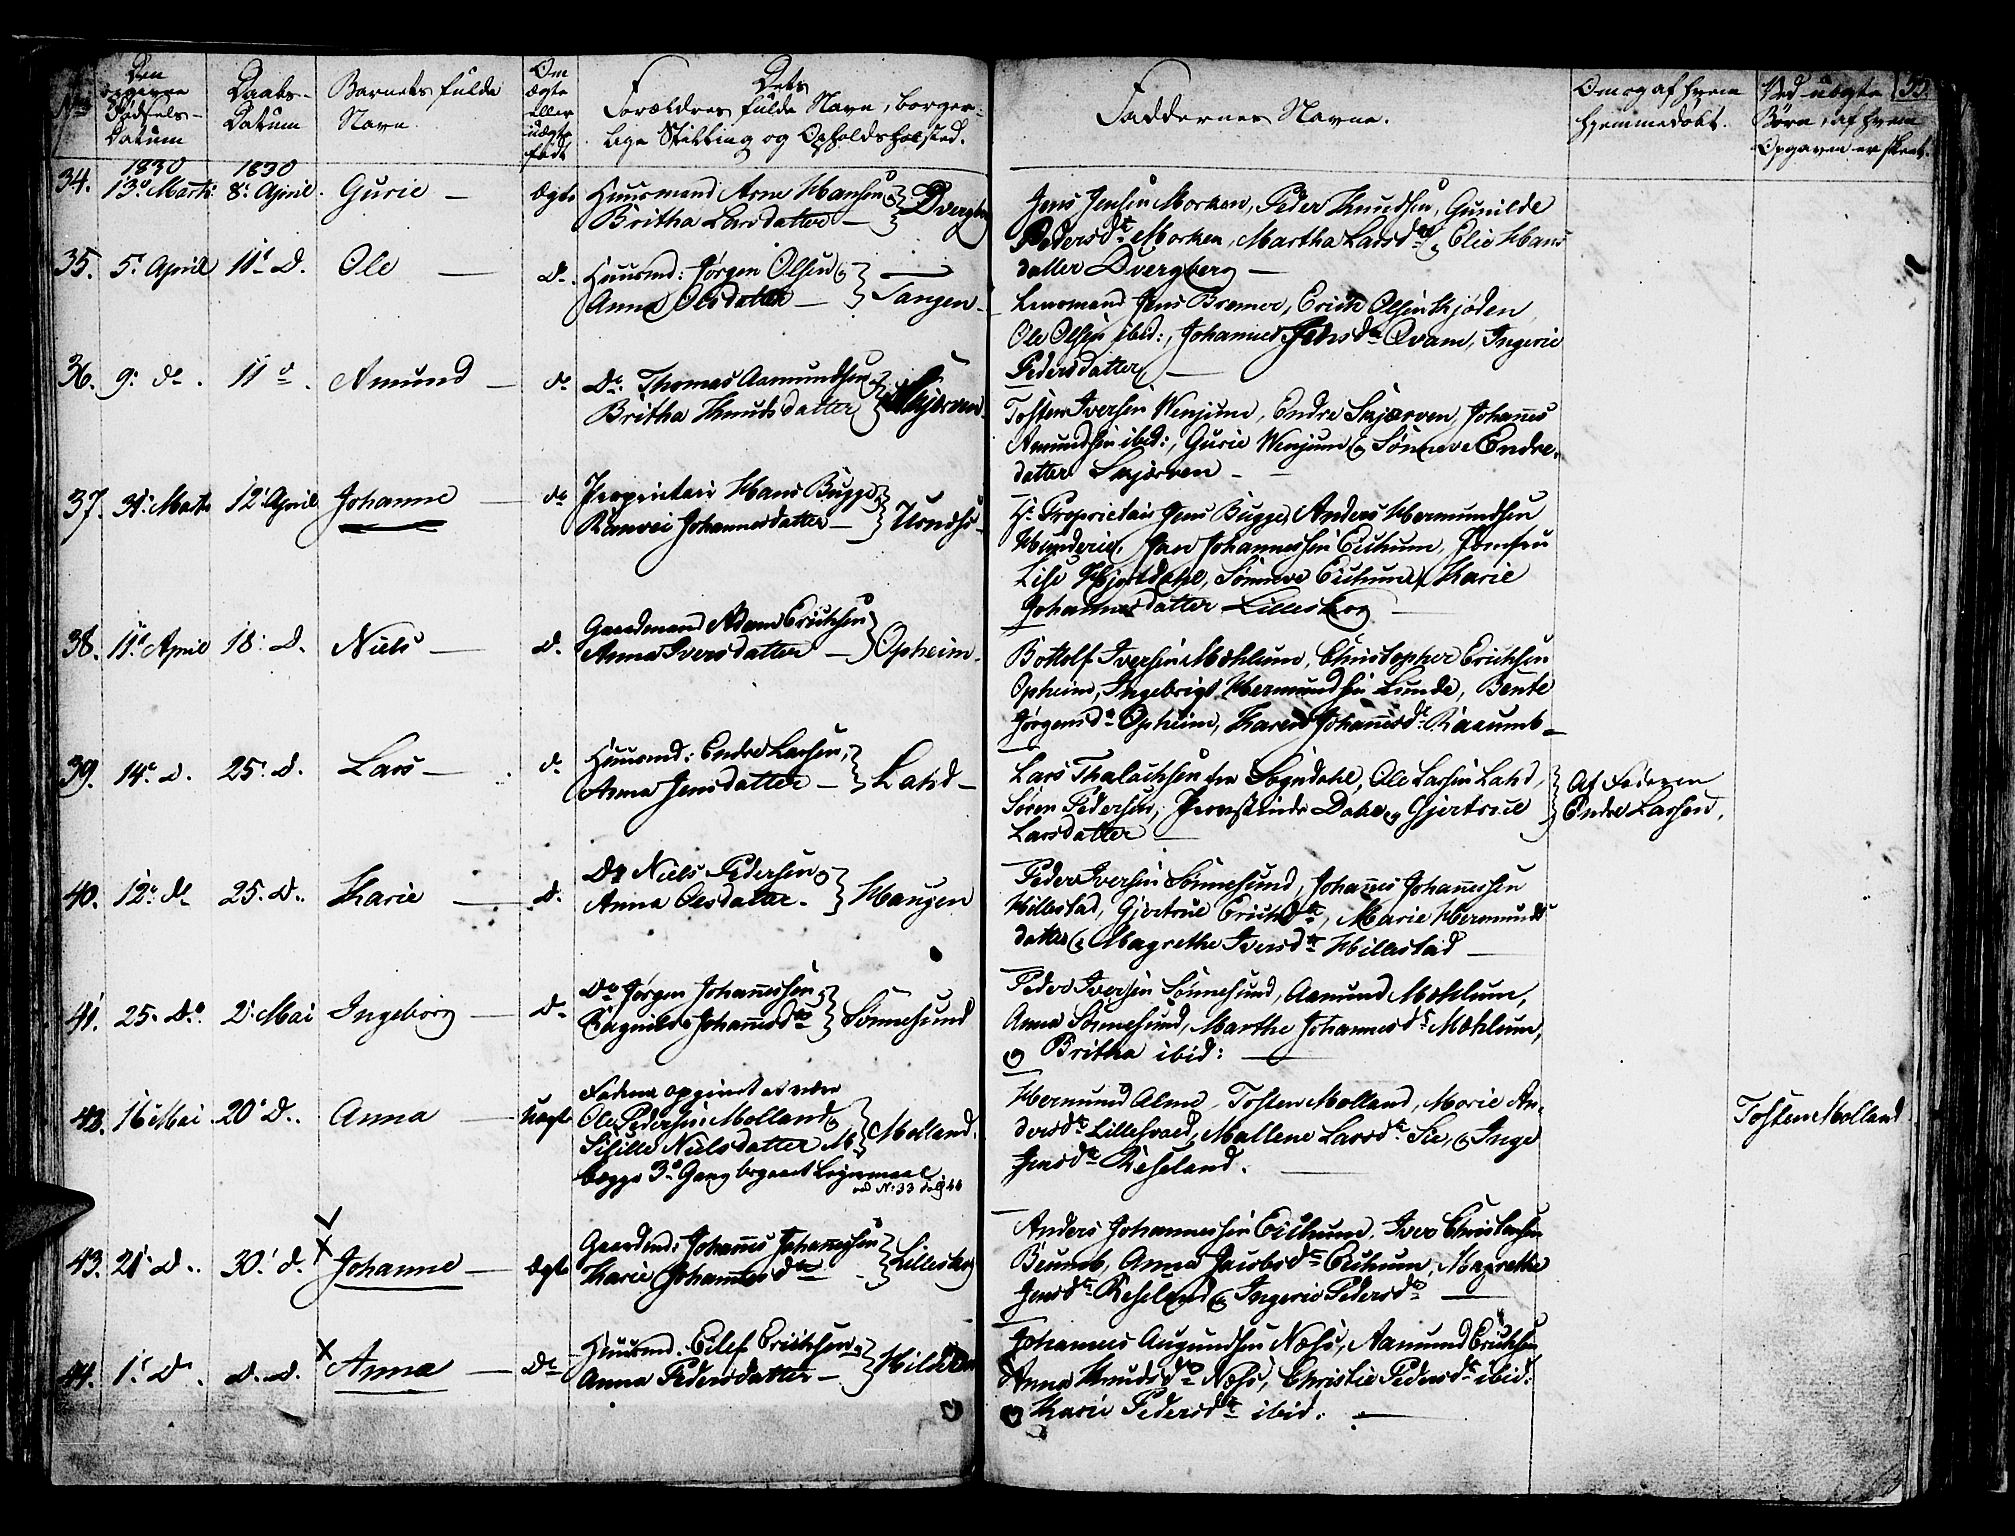 No
Den opgivne Fødsels-Datum
Daabs-Datum
Barnets fulde Navn.
Om ægte eller uægte født
Dets Forældres fulde Navn, borger-
lige Stilling og Opholdssted.
Faddernes Navne.
Om og af hvem
hjemmedøbt.
Ved uægte
Børn, af hvem
Opgaven er skeet.
55
1830 1830
34. 13de Marti 8de April. Gurie – ægte Huusmand Arne Hansen og
Britha Larsdatter – } Dvergberg
Jens Jensen Morken, Peder Knudsen, Gunilde
Pedersdtr Morken, Martha Larsdtr og Elie Hans
datter Dvergberg –
35. 5te April 11te D. Ole – do. Huusmd: Jørgen Olsen og
Anna Olsdatter – } Tangen –
Lensmand Jens Bremer, Erich Olsen Skjøden
Ole Olsen ibid:, Johannes Jensdtr Qvam, Ingerie
Pedersdatter –
36. 9de do. 11te d. Amund – do Do. Thomas Aamundsen og
Britha Knudsdatter } Skjerven.
Tosten Iversen Wenjum, Endre Skjærven, Johannes
Amundsen ibid:, Gurie Wenjum og Sønneve Endre-
datter Skjerven –
37. 31te Marts 12te April Johanne – do Proprietair Hans Bugge og
Ranvei Johannesdatter – } Urnes
Hr. Proprietair Jens Bugge, Anders Hermundsen
Johannessen Eithum, Jomfru
Lise Hjortdahl, Sønneve Eithum, Karie
Johannesdatter Lilleskog –
38. 11te April 18. D. Niels – d. Gaardmand Adam Erichsen
Anna Iversdatter – } Opheim.
Bottolf Iversen Mohlum, Christopher Erichsen
Opheim, Ingebrigt Hermundsen Lunde, Bente
Jørgensdtr Opheim, Karen Johannesdtr Raaumb –
39. 14de d. 25de d. Lars – d. Huusmd: Endre Larsen,
Anna Jensdatter – } Latid –
Lars Thalachsen fra Sogndahl, Ole Larsen Latid,
Søren Pedersen, Dahl og Gjertrue
Larsdatter –
Af Faderen
Endre Larsen.
40. 12te do 25. D. Karie – d. Do Niels Pedersen og
Anna Olsdatter – } Haugen
Peder Iversen Sønnesund, Johannes Johannessen
Hillestad, Gjertrue Erichsdtr, Marie Hermunds
datter og Magrethe Iversdtr Hillestad –
41. 25. Do. 2de Mai Ingeborg – D. Do Jørgen Johannessen
Ragnilde Johannesdtr } Sønnesund
Peder Iversen Sønnesund, Aamund Mohlum,
Anna Sønnesund, Marthe Johannesdtr Mohlum,
og Britha ibid: –
42. 16de Mai. 20de D. Anna – uægte Faderen opgivet at være
Ole Pedersen Molland og
Sisille Nielsdatter M. } Molland.
begge 3de Gang begaaet Leiermaal.
ved No: 33
Hermund Alme, Tosten Molland, Marie An-
dersdtr Lillesvaed, Mallene Larsdtr Sie, og Inge
Jensdtr Reseland. –
Tosten Molland
43. 21de D. 30te d. Johanne – ægte Gaardmd: Johannes Johannessen
Karie Johannesdtr } Lilleskog
Anders Johannessen Eithum, Iver Christensen
Beumb, Anna Jacobsdtr Eithum, Magrethe
Jensdtr Reseland og Ingerie Pedersdtr –
44. 1te D. D. D. Anna – Do Huusmd. Eilef Erichsen,
Anna Pedersdatter – } Hilden
Johannes Augundsen Nohs, Aamund Erichsen,
Anna Knudsdtr Nohs, Christie Pedersdtr ibid:
og Karie Pedersdtr ibid. –